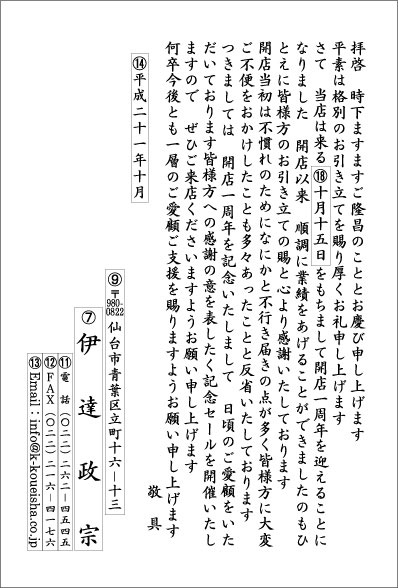 拝啓　時下ますますご隆昌のこととお慶び申し上げます
平素は格別のお引き立てを賜り厚くお礼申し上げます
さて　当店は来る⑱十月十五日をもちまして開店一周年を迎えることに
なりました　開店以来　順調に業績をあげることができましたのもひ
とえに皆様方のお引き立ての賜と心より感謝いたしております
開店当初は不慣れのためになにかと不行き届きの点が多く皆様方に大変
ご不便をおかけしたことも多々あったことと反省いたしております
つきましては　開店一周年を記念いたしまして　日頃のご愛顧をいた
だいております皆様方への感謝の意を表したく記念セールを開催いたし
ますので　ぜひご来店くださいますようお願い申し上げます
何卒今後とも一層のご愛顧ご支援を賜りますようお願い申し上げます
敬具
⑭平成二十一年十月
⑨〒980-0822仙台市青葉区立町十六ー十三
⑦伊達政宗
⑪電話（〇二二）二六二ー四五四五
⑫FAX（〇二二）二一六ー四一七六
⑬Email：info@k-koueisha.co.jp